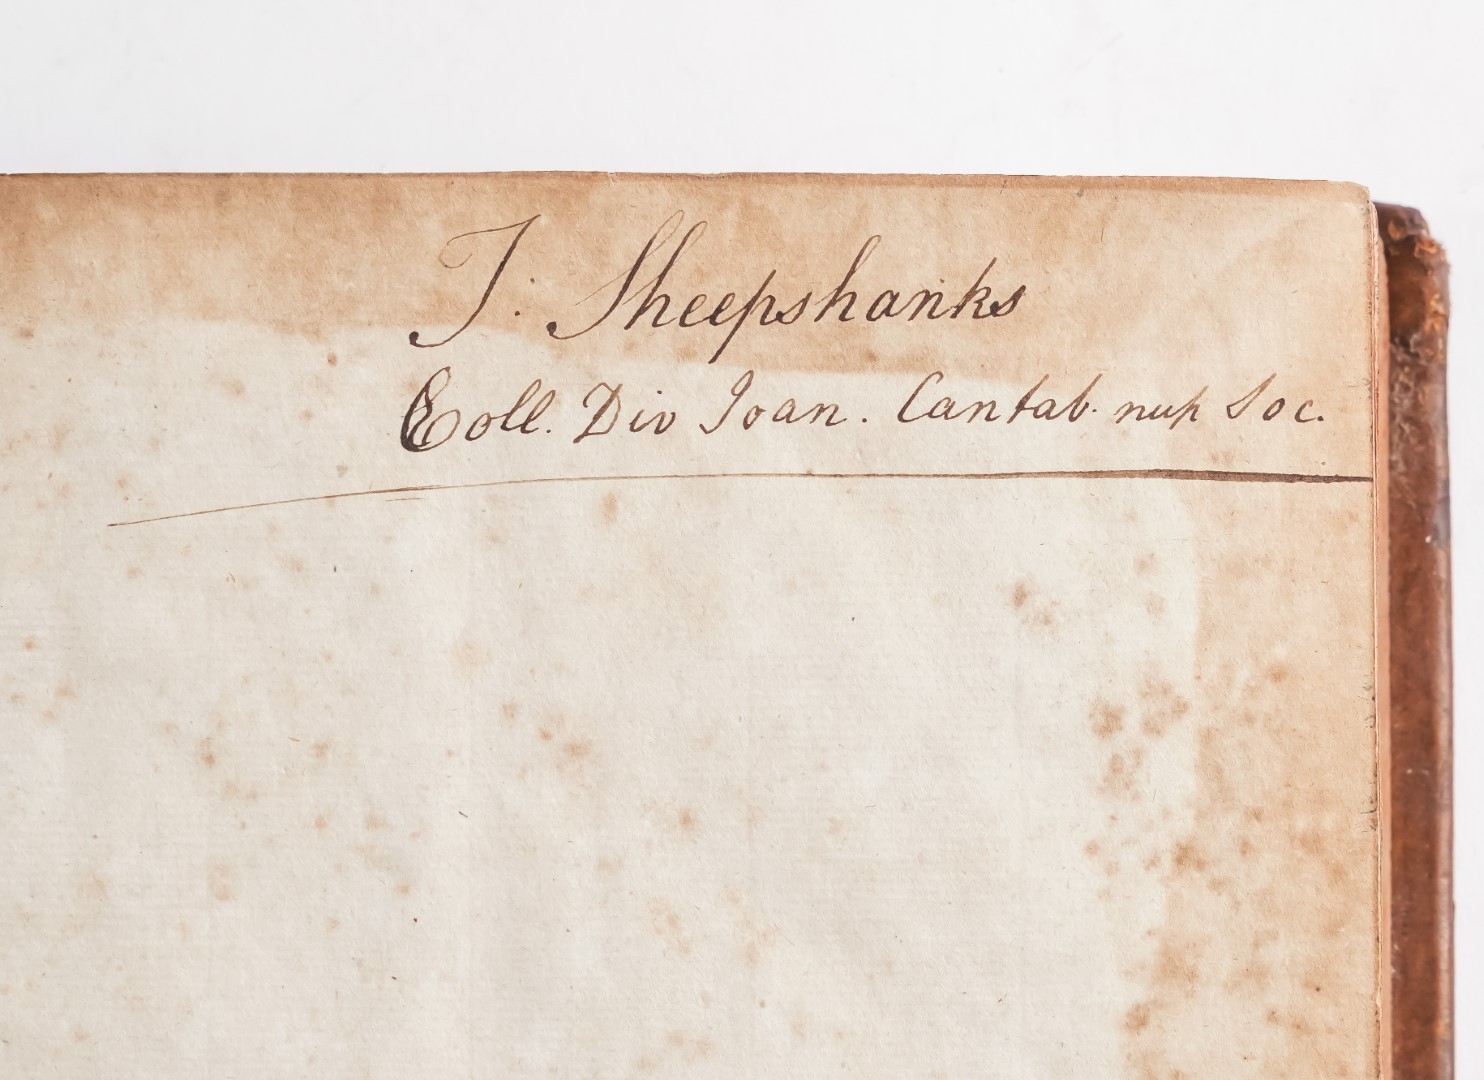 J. Sheepshanks
Coll. Div Joan. Cantab. nup Soc.